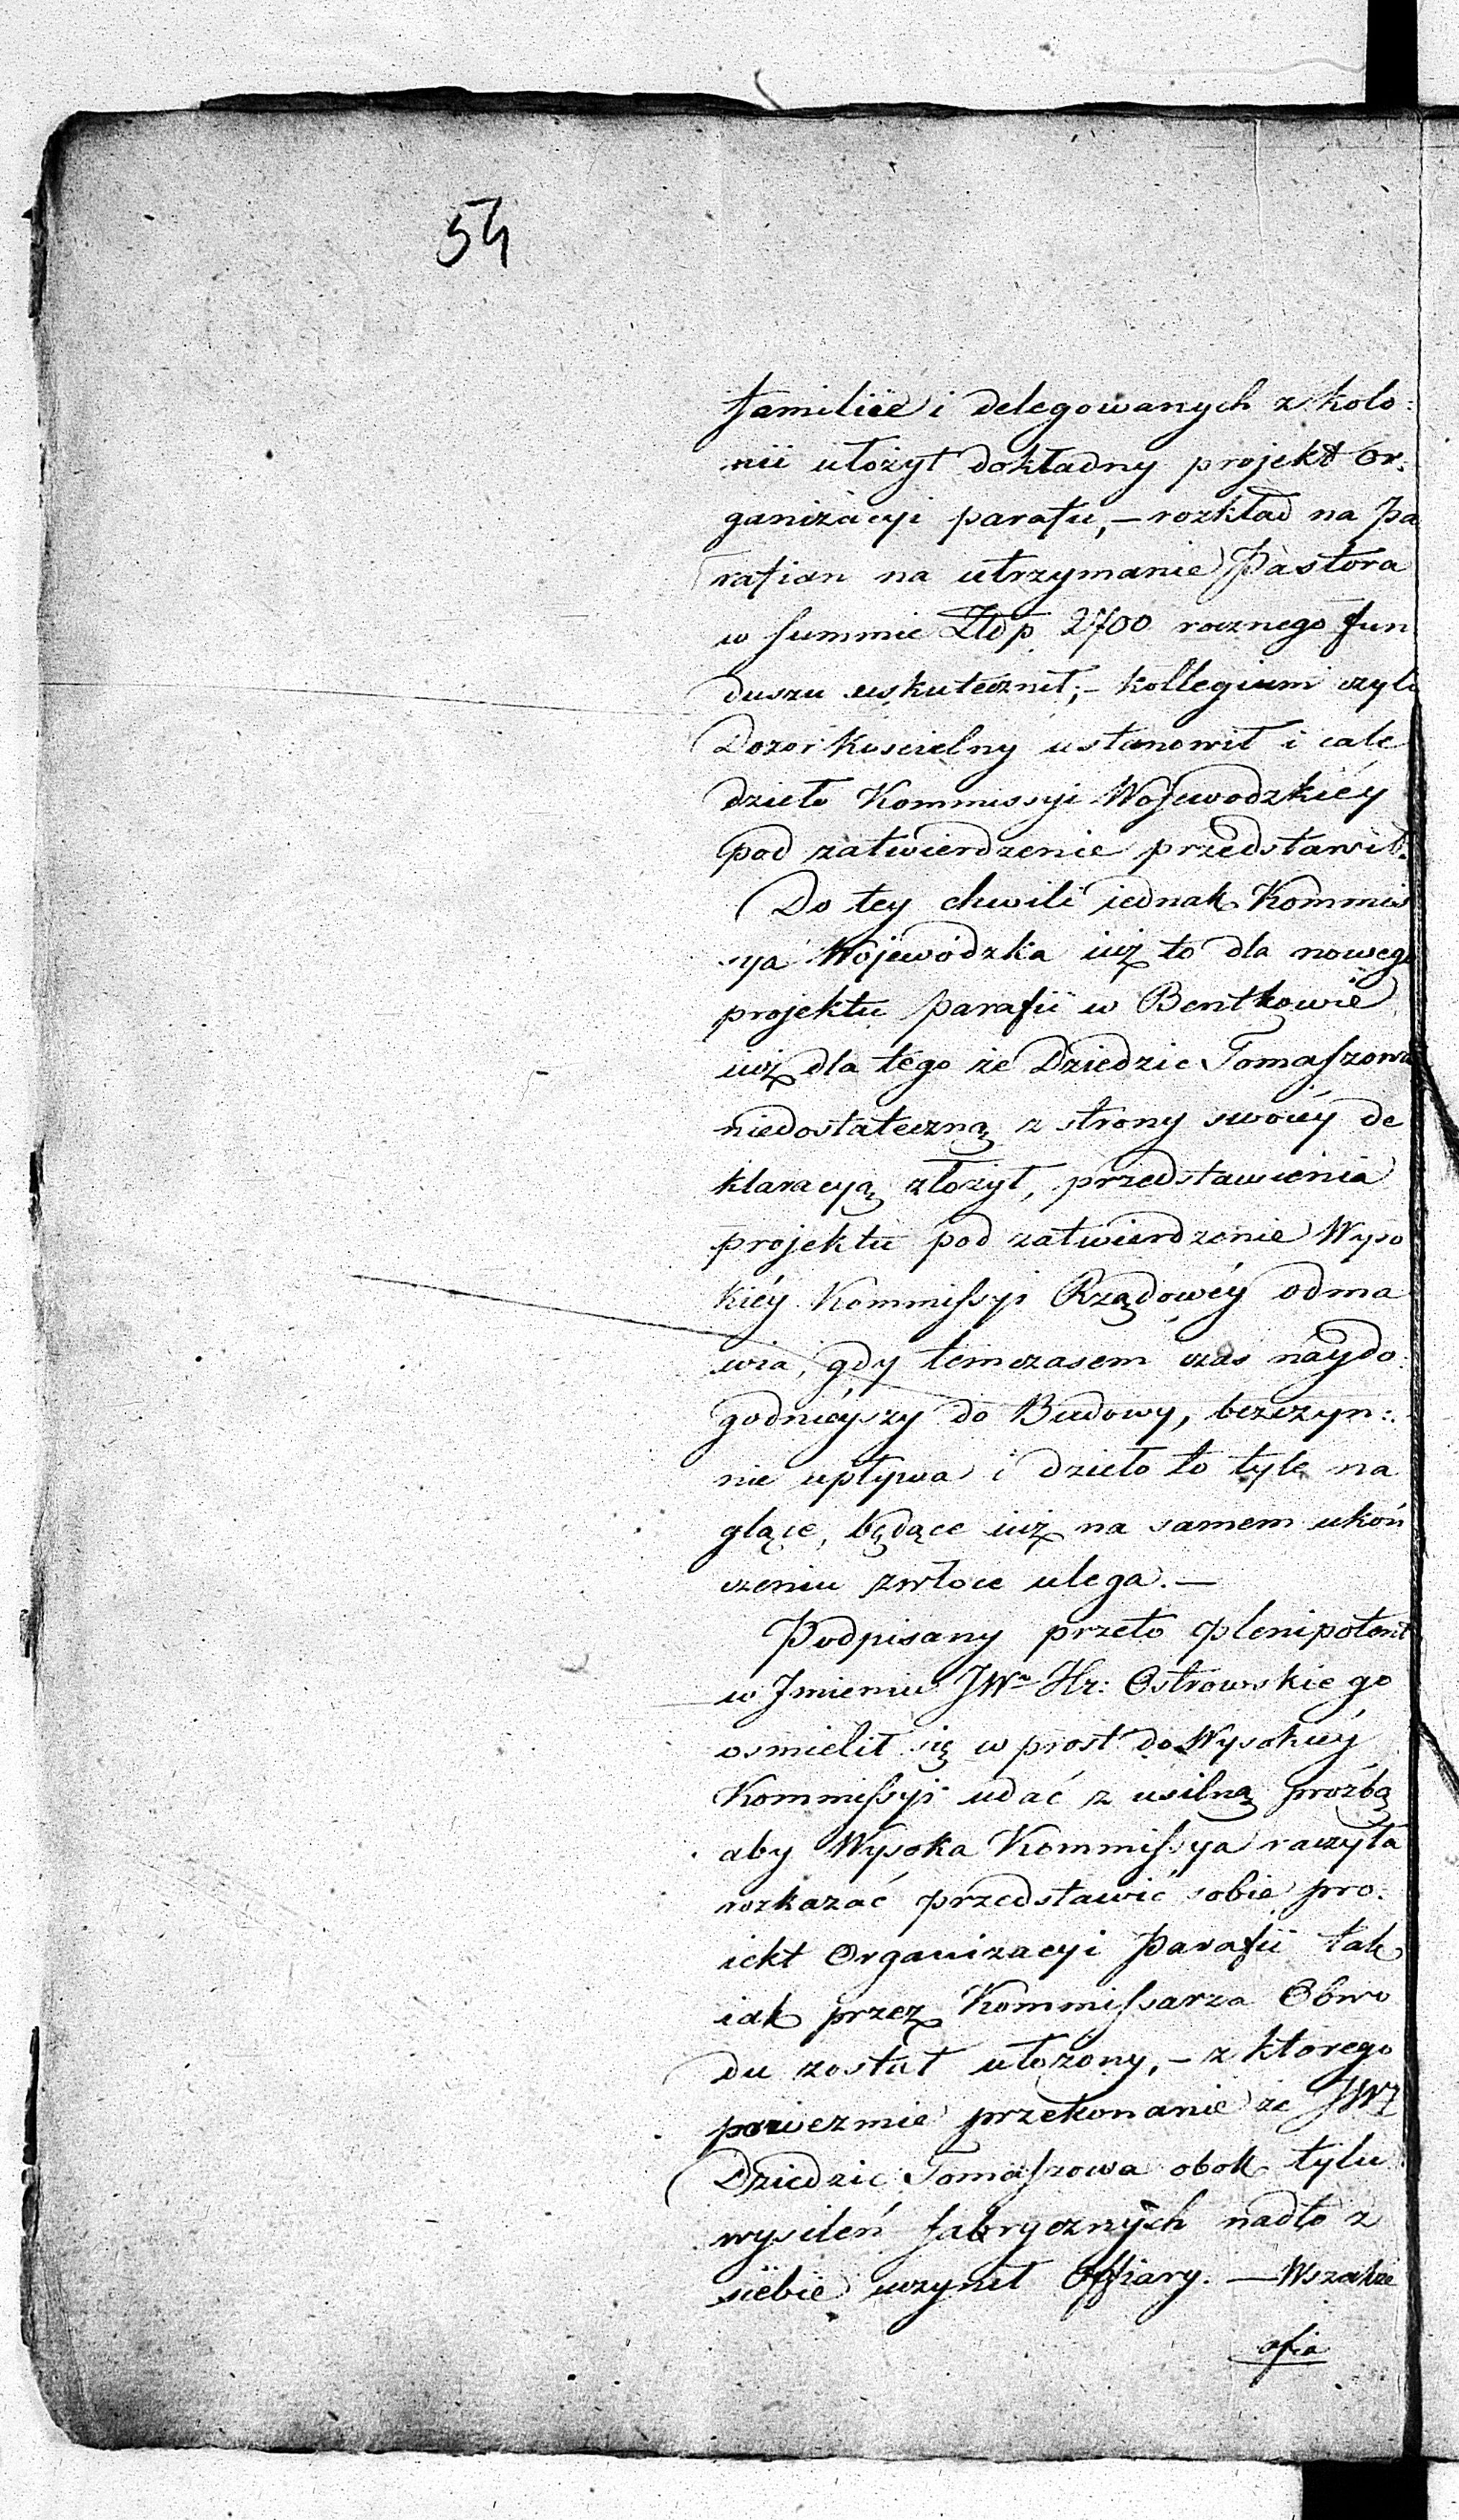 54
familiie i delegowanych z kolo:
nii ułożył dokładny projekt or:
ganizacyi parafii, – rozkład na pa
rafian na utrzymanie Pastora
w summie Złdp 2700 rocznego fun
duszu uskutecznił; – kollegium czyli
Dozor kościelny ustanowił i całe
dzieło Kommissyi Wojewodzkiéy
pod zatwierdzenie przedstawił.
Do tey chwili iednak Kommis
sya Wojewódzka iuż to dla nowego
projektu parafii w Bentkowie
iuż dla tego że Dziedzic Tomaszowa
niedostateczną z strony swoiéy de
klaracyą złożył, przedstawienia
projektu pod zatwierdzenie Wyso
kiéy Kommissyi Rządowéy odma
wia, gdy temczasem czas naydo:
godnieyszy do Budowy, bezczyn:
nie upływa i dzieło to tyle na
glące, będące iuż na samem ukoń
czeniu zwłoce ulega. –
Podpisany przeto plenipotent
w Jmieniu JWo Hr: Ostrowskiego
osmielił się w prost do Wysokiéy
Kommissyi udać z usilną prozbą
aby Wysoka Kommissya raczyła
rozkazać przedstawić sobie pro:
iekt Organizacyi Parafii tak
iak przez Kommissarza Obwo
du został ułożony, – z ktorego
poweźmie przekonanie że JWż
Dziedzic Tomaszowa obok tylu
wysileń fabrycznych nadto z
siebie uczynił Offiary. – Wszakże
ofia